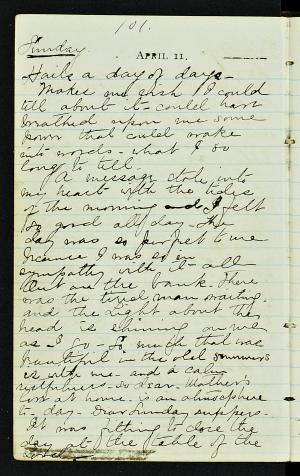 101.
Sunday.
APRIL 11.
Hail a day of days -
Makes me wish I could
tell about it - could have
breathed upon me some
power that could wake
into words - what I so
long to tell.
A message stole into
my heart with the tides
of the morning and I felt
so good all day - The
day was so perfect to me
because I was so in
sympathy with it - all
out on the bank. There
was the tired man waiting.
and the light about the
head is shining on me
as I go - So much that was
beautiful in the old summers
is with me - and a calm
restfulness - so dear. Mother's
love at home - is an atmosphere
to-day - Dear Sunday suppers.
It was fitting to close the
day at the table of the
Lord